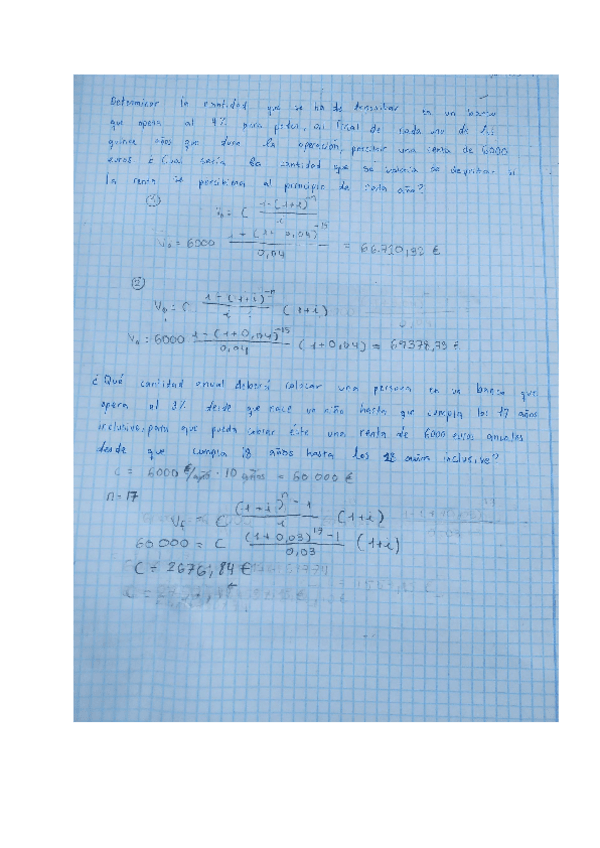 Determinar la cantidad que se ha de depositar en un banco
que opera al 4% para poder, al final de cada uno de los
quince años que dure la operación, percibir una renta de 6000
euros ¿Cual sería la cantidad que se debería de depositar si
la renta se percibiera al principio de cada año?
①
V₀ = C (1-(1+i)⁻ⁿ)/i
V₀ = 6000 (1-(1+0,04)⁻¹⁵)/0,04 = 66.710,32 €
②
V₀ = C (1-(1+i)⁻ⁿ)/i (1+i)
V₀ = 6000 (1-(1+0,04)⁻¹⁵)/0,04 (1+0,04) = 69378,73 €
¿Qué cantidad anual deberá colocar una persona en un banco que
opera al 3% desde que nace un niño hasta que cumpla los 17 años
inclusive, para que pueda cobrar éste una renta de 6000 euros anuales
desde que cumpla 18 años hasta los años inclusive?
C = 6000 €/año · 10 años = 60 000 €
n = 17
C ((1-i)ⁿ - 1)/i (1+i)
60 000 = C ((1+0,03)¹⁷ - 1)/0,03 (1+i)
C = 2676,84 €